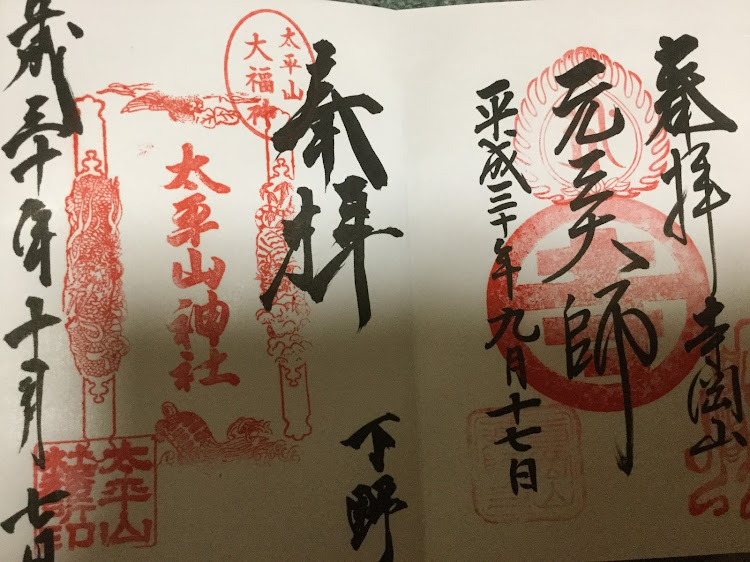 奉拝
寺岡山
元三大師
平成三十年九月十七日
太平山
大福神
奉拝
下野
太平山神社
歳三十年十一月七日
太平山